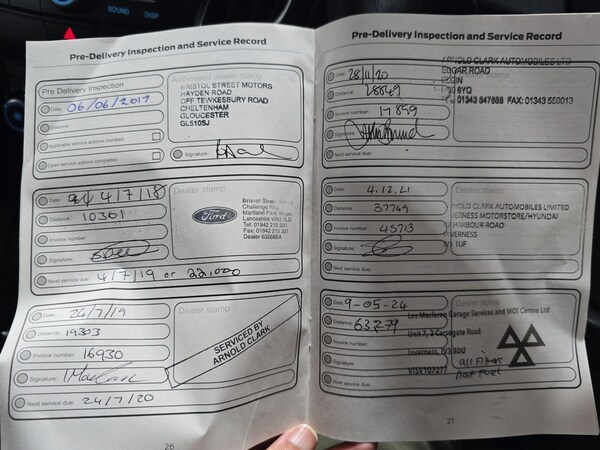 SOUND DISP
Pre-Delivery Inspection and Service Record
Pre Delivery Inspection
Date: 06/06/2017
Distance:
Applicable service actions checked:
Open service actions completed:
Authorised dealer stamp
BRISTOL STREET MOTORS
HAYDEN ROAD
OFF TEWKESBURY ROAD
CHELTENHAM
GLOUCESTER
GL510SJ
Signature:
Date: 4/7/18
Distance: 10361
Invoice number:
Signature:
Next service due: 4/7/19 or 22,000
Dealer stamp
Ford
Bristol Street
Challenge Way
Martland Park, Wigan
Lancashire WN5 0LD
Tel: 01942 210 200
Fax: 01942 210 201
Dealer
Date: 24/7/19
Distance: 19303
Invoice number: 16930
Signature:
Next service due: 24/7/20
Dealer stamp
SERVICED BY
ARNOLD CLARK
26
Pre-Delivery Inspection and Service Record
Date: 28/11/20
Distance:
Invoice number: 17859
Signature:
Next service due:
ARNOLD CLARK AUTOMOBILES LTD
EDGAR ROAD
ELGIN
6YQ
01343 547688 FAX: 01343
Date: 4.12.21
Distance: 37749
Invoice number: 45713
Signature:
Next service due:
Dealer stamp
NOLD CLARK AUTOMOBILES LIMITED
VERNESS MOTORSTORE/HYUNDAI
HARBOUR ROAD
VERNESS
1UF
Date: 9-05-24
Distance: 63279
Invoice number:
Signature:
Next service due:
Dealer stamp
Garage Services and MOT Centre Ltd
Unit 7, 3 Carsegate Road
Inverness, IV3 8DU
VTSV107277
all Filters
Not Fuel
27